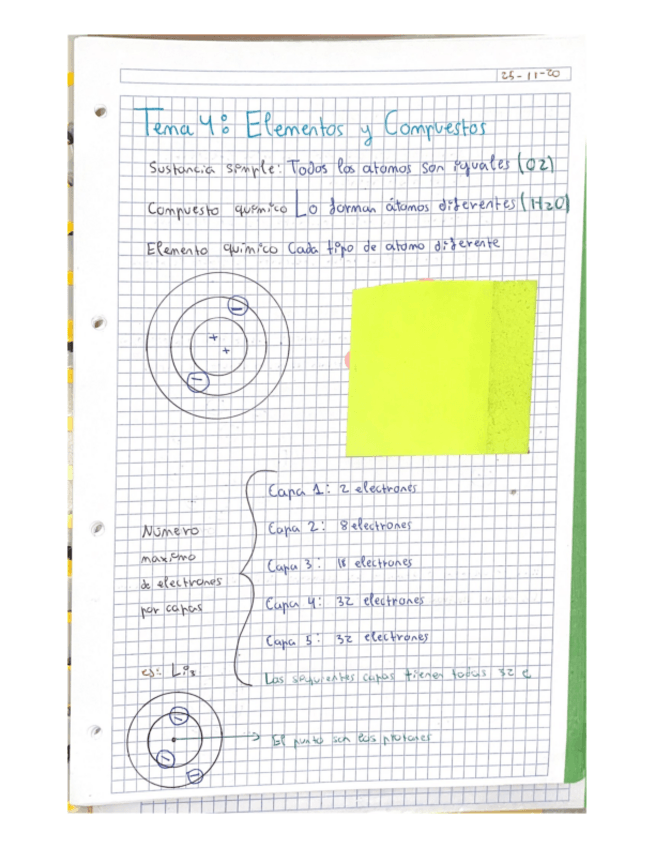 25-11-20
Tema 4: Elementos y Compuestos
Sustancia simple: Todos los atomos son iguales (O2)
Compuesto químico Lo forman átomos diferentes (H2O)
Elemento químico Cada tipo de atomo diferente
−
+
+
−
Capa 1: 2 electrones
Capa 2: 8 electrones
Capa 3: 18 electrones
Capa 4: 32 electrones
Capa 5: 32 electrones
Las seguientes capas tienen todas 32 e
Número
maximo
de electrones
por capas
ej: Li3
−
−
−
El punto son los protones